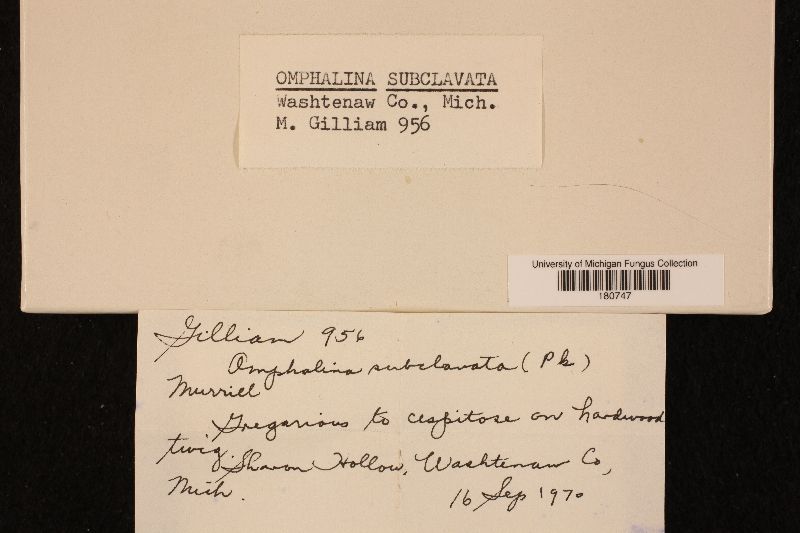 OMPHALINA SUBCLAVATA
Washtenaw Co., Mich.
M. Gilliam 956
University of Michigan Fungus Collection
180747
Gilliam 956
Omphalina subclavata (Pk)
Murrill
Gregarious to cespitose on hardwood
twig. Sharon Hollow, Washtenaw Co,
Mich.
16 Sep 1970